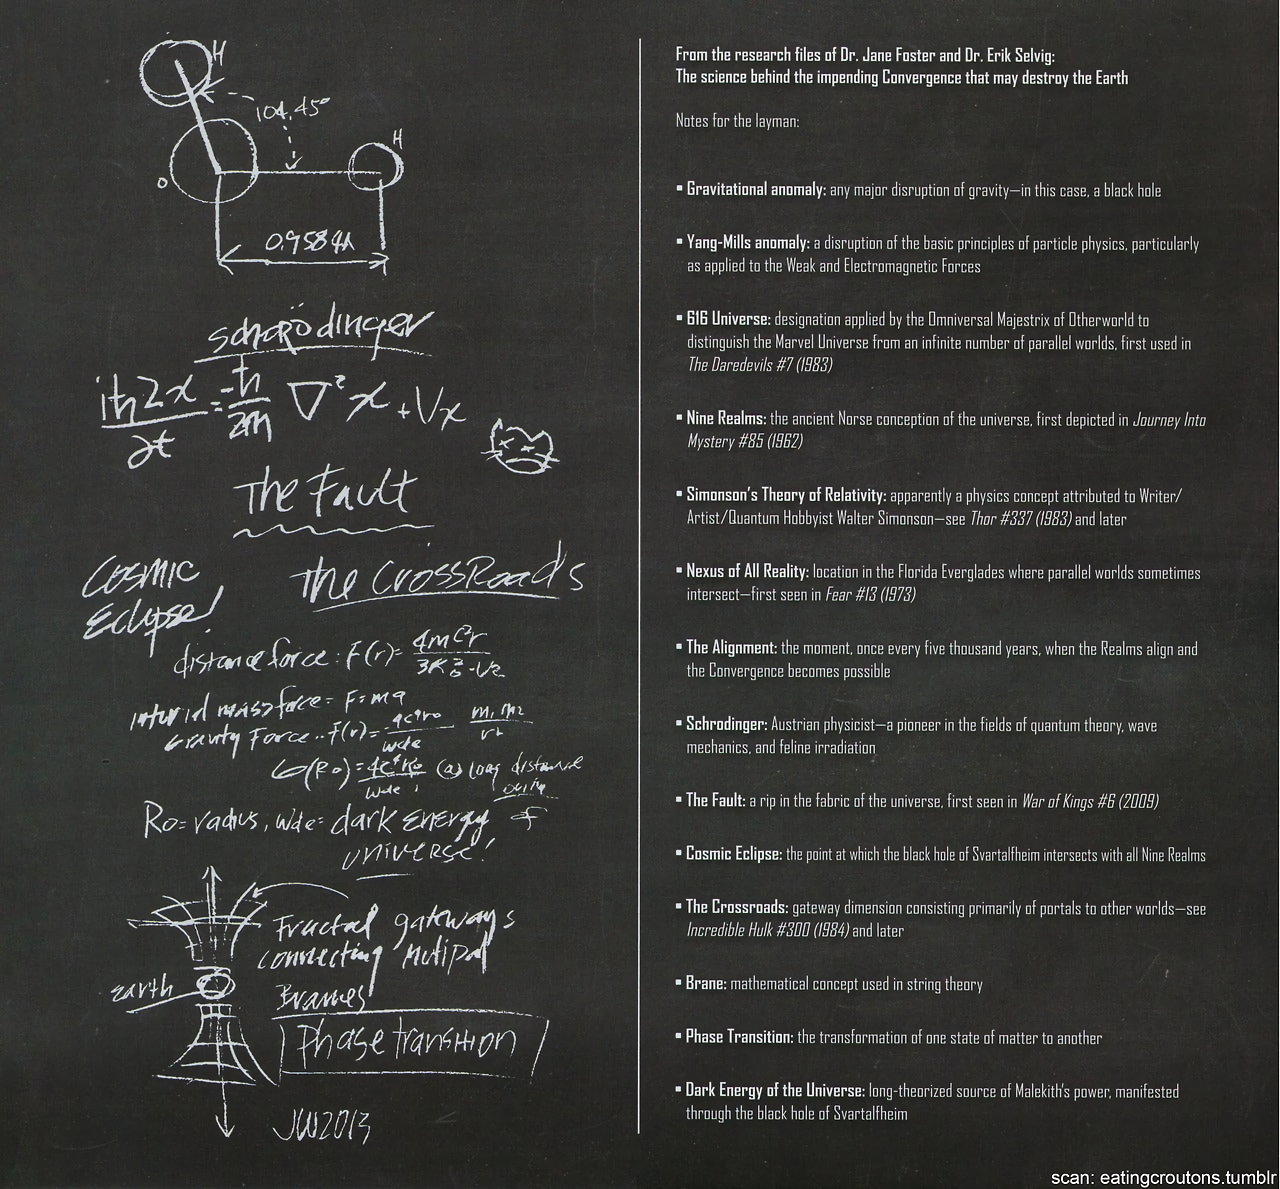 H
104.45°
H
O
0.9584A
schrödinger
iħ2x = -ħ ∇²x + Vx
∂t 2m
The Fault
Cosmic
Eclipse!
The CrossRoads
distance force: F(r)= 4mc²r
mass force = F=ma
Gravity Force.. f(r)= m₁m₂
wde
G(Ro)= (a) long distance
wde
Ro=radius, wde= dark energy of
universe!
Fractal gateways
connecting Mutipal
Branes
earth
Phase transition
JW2013
From the research files of Dr. Jane Foster and Dr. Erik Selvig:
The science behind the impending Convergence that may destroy the Earth
Notes for the layman:
▪ Gravitational anomaly: any major disruption of gravity—in this case, a black hole
▪ Yang-Mills anomaly: a disruption of the basic principles of particle physics, particularly
as applied to the Weak and Electromagnetic Forces
▪ 616 Universe: designation applied by the Omniversal Majestrix of Otherworld to
distinguish the Marvel Universe from an infinite number of parallel worlds, first used in
The Daredevils #7 (1983)
▪ Nine Realms: the ancient Norse conception of the universe, first depicted in Journey Into
Mystery #85 (1962)
▪ Simonson's Theory of Relativity: apparently a physics concept attributed to Writer/
Artist/Quantum Hobbyist Walter Simonson—see Thor #337 (1983) and later
▪ Nexus of All Reality: location in the Florida Everglades where parallel worlds sometimes
intersect—first seen in Fear #13 (1973)
▪ The Alignment: the moment, once every five thousand years, when the Realms align and
the Convergence becomes possible
▪ Schrodinger: Austrian physicist—a pioneer in the fields of quantum theory, wave
mechanics, and feline irradiation
▪ The Fault: a rip in the fabric of the universe, first seen in War of Kings #6 (2009)
▪ Cosmic Eclipse: the point at which the black hole of Svartalfheim intersects with all Nine Realms
▪ The Crossroads: gateway dimension consisting primarily of portals to other worlds—see
Incredible Hulk #300 (1984) and later
▪ Brane: mathematical concept used in string theory
▪ Phase Transition: the transformation of one state of matter to another
▪ Dark Energy of the Universe: long-theorized source of Malekith's power, manifested
through the black hole of Svartalfheim
scan: eatingcroutons.tumblr